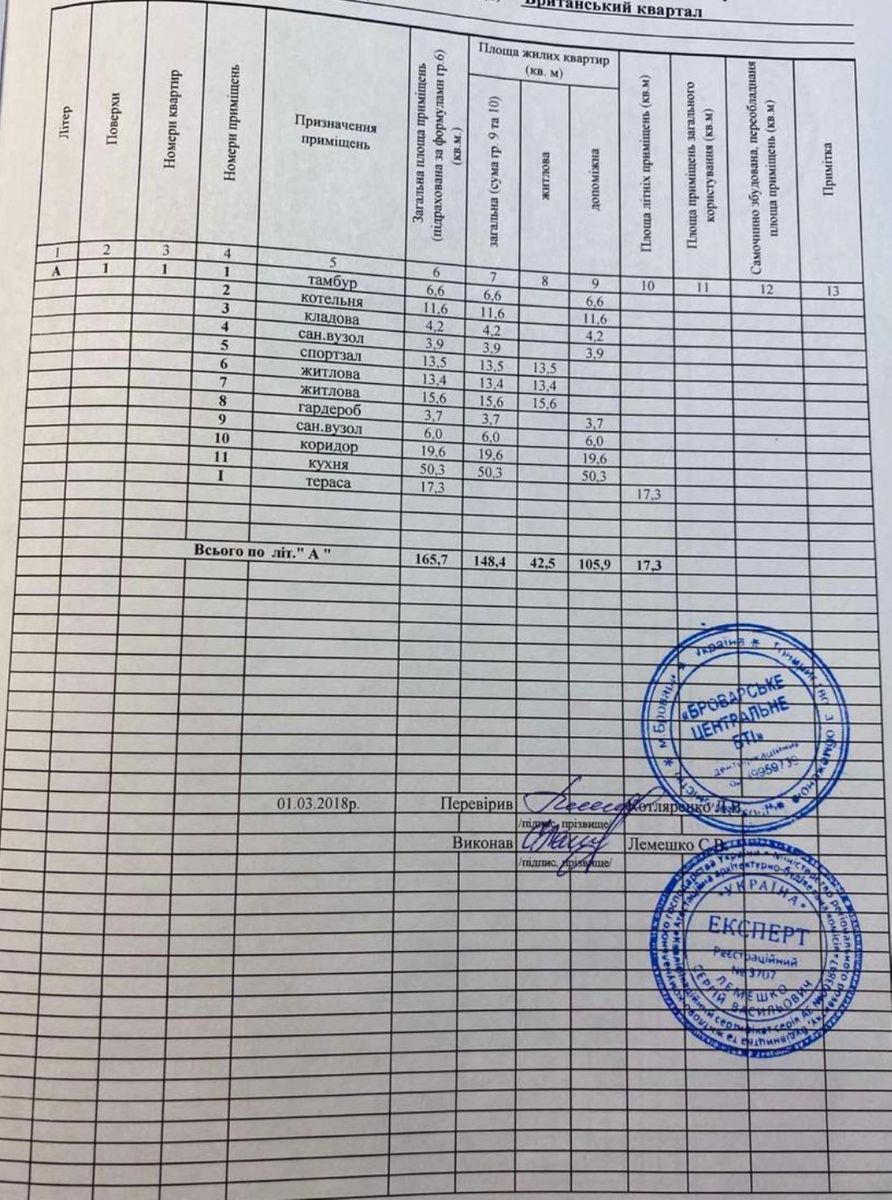 Британський квартал
Літер
Поверхи
Номери квартир
Номери приміщень
Призначення
приміщень
Загальна площа приміщень
(підрахована за формулами гр.6)
(кв.м.)
Площа жилих квартир
(кв. м)
загальна (сума гр. 9 та 10)
житлова
допоміжна
Площа літніх приміщень (кв.м)
Площа приміщень загального
користування (кв.м)
Самочинно збудована, переобладнана
площа приміщень (кв.м)
Примітка
1 2 3 4 5 6 7 8 9 10 11 12 13
А 1 1 1 тамбур 6,6 6,6 6,6
2 котельня 11,6 11,6 11,6
3 кладова 4,2 4,2 4,2
4 сан.вузол 3,9 3,9 3,9
5 спортзал 13,5 13,5 13,5
6 житлова 13,4 13,4 13,4
7 житлова 15,6 15,6 15,6
8 гардероб 3,7 3,7 3,7
9 сан.вузол 6,0 6,0 6,0
10 коридор 19,6 19,6 19,6
11 кухня 50,3 50,3 50,3
I тераса 17,3 17,3
Всього по літ." А " 165,7 148,4 42,5 105,9 17,3
м.Бровари * Україна *
«БРОВАРСЬКЕ
ЦЕНТРАЛЬНЕ
БТІ»
01.03.2018р. Перевірив Котляренко Л.В.
/підпис, прізвище/
Виконав Лемешко С.В.
/підпис, прізвище/
* УКРАЇНА *
ЕКСПЕРТ
Реєстраційний
№ 3707
ЛЕМЕШКО
СЕРГІЙ ВАСИЛЬОВИЧ